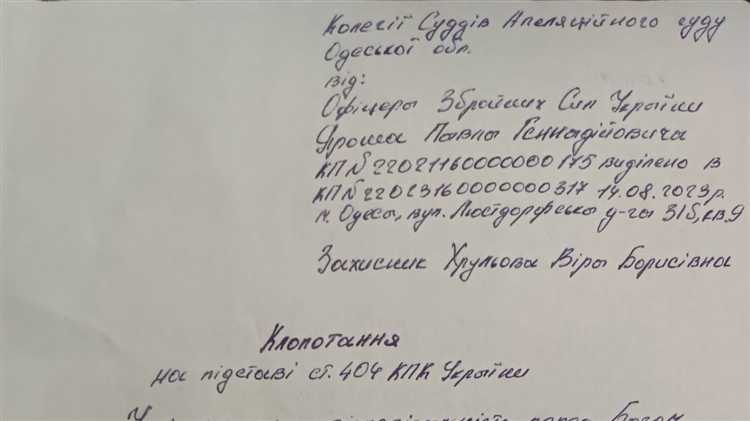 Колегії Суддів Апеляційного суду
Одеської обл.
від:
Офіцера Збройних Сил України
Яроша Павла Геннадійовича
КП№22021160000000175 виділено в
КП№22023160000000317 14.08.2023р.
м. Одеса, вул. Люстдорфська д-га 31Б, кв.9
Захисник Хрульова Віра Борисівна
Клопотання
на підставі ст. 404 КПК України